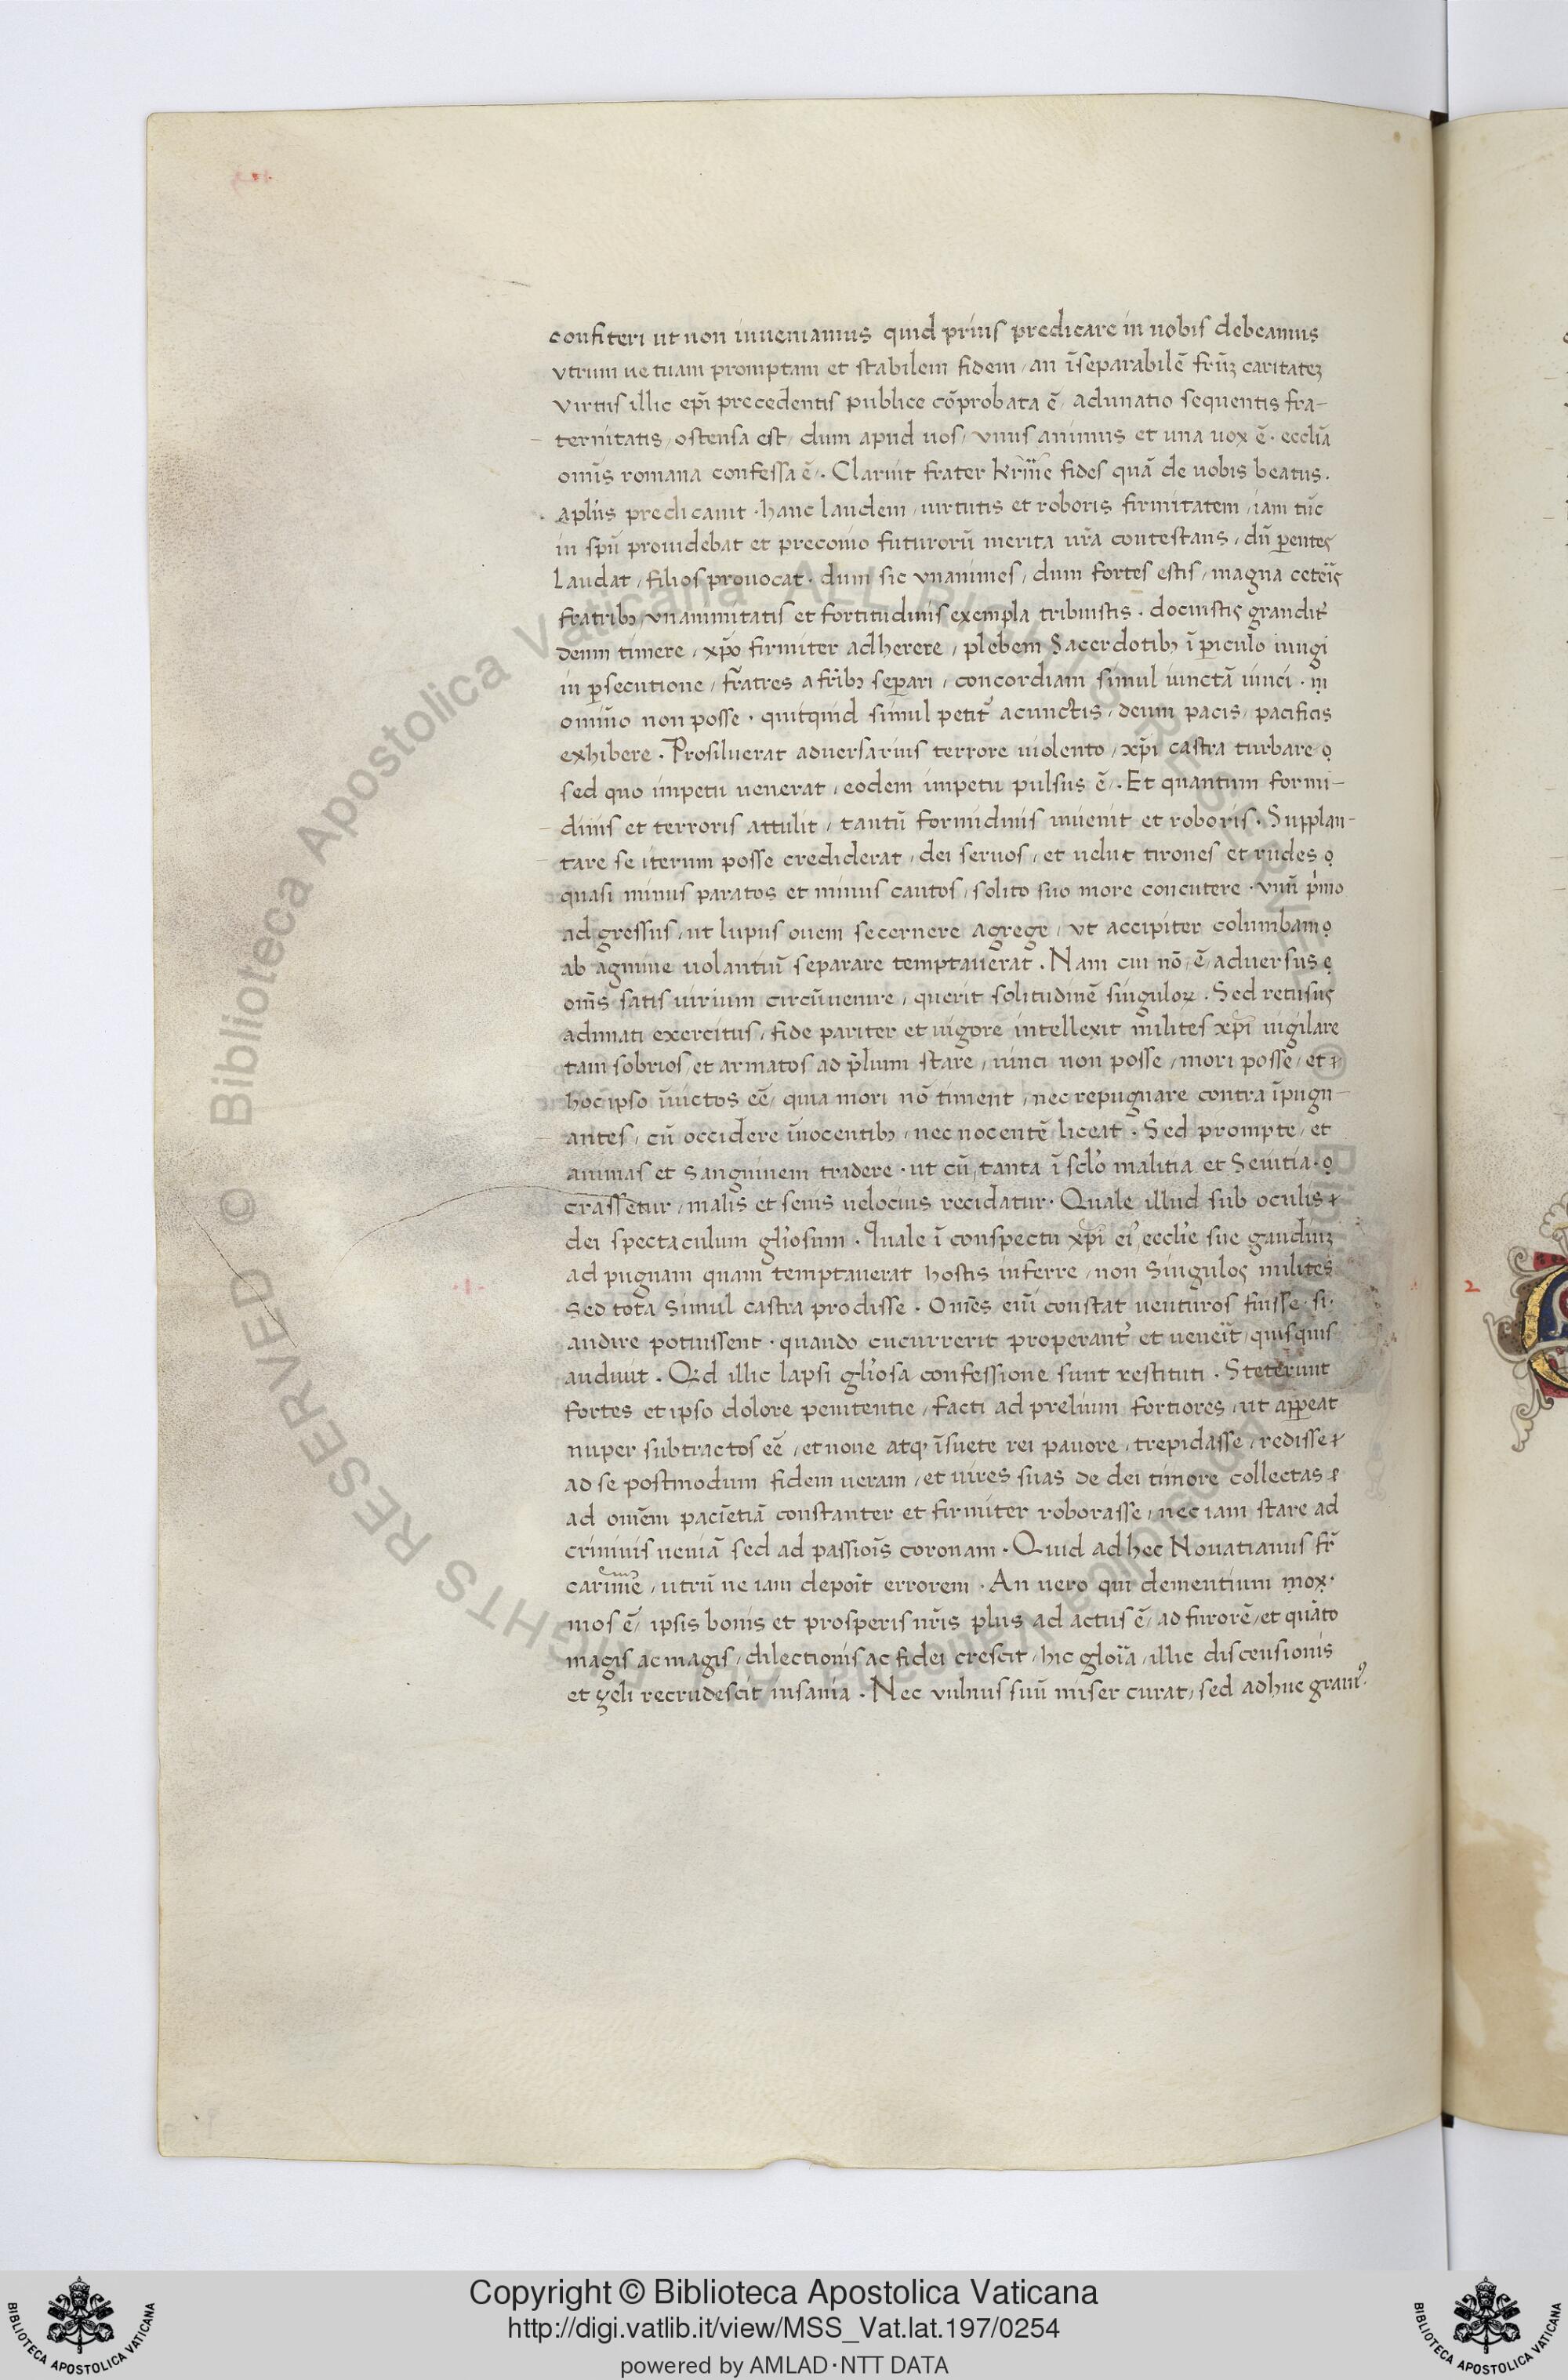 confiteri ut non inueniamus quid prius predicare in nobis debeamus
vtrum ue tuam promptam et stabilem fidem / an īseparabilē frūꝫ caritateꝫ
virtus illic ep̄i precedentis publice cōprobata ē / adunatio sequentis fra-
ternitatis / ostensa est / dum apud uos / vnus animus et una uox ē · eccl̄ia
om̄is romana confessa ē / . Claruit frater kr̄me fides quā de uobis beatus .
apl̄us predicauit · hanc laudem / uirtutis et roboris firmitatem / iam tūc
in sp̄u prouidebat et preconio futurorū merita ur̄a contestans / dū ꝑentes
Laudat / filios prouocat · dum sic vnanimes / dum fortes estis / magna ceteīs
fratribꝫ vnanimitatis et fortitudinis exempla tribuistis . docuistis granditˀ
deum timere / xp̄o firmiter adherere / plebem Sacerdotibꝫ ī ꝑiculo iungi
in ꝑsecutione / fr̄atres a fr̄ibꝫ seꝑari / concordiam simul iunctā uinci · in
omīno non posse · quitquid simul petitˀ a cunctis / deum pacis / pacificis
exhibere . Prosiluerat aduersarius terrore uiolento / xp̄i castra turbare
sed quo impetu uenerat / eodem impetu pulsus ē / . Et quantum formi-
dinis et terroris attulit / tantū formidinis inuenit et roboris . Supplan-
tare se iterum posse crediderat / dei seruos / et uelut tirones et rudes
quasi minus paratos et minus cautos / solito suo more concutere · vnū pͥmo
adgressus / ut lupus ouem secernere agrege / vt accipiter columbam
ab agmine uolantiū separare temptauerat . Nam cui nō ē / aduersus
om̄s satis uirium circūuenire / querit solitudinē singuloꝝ . Sed retusus
adunati exercitus / fide pariter et uigore intellexit milites xp̄i uigilare
tam sobrios / et armatos ad p̄lium stare / uinci non posse / mori posse / et
hoc ipso īuictos eē / quia mori nō timent / nec repugnare contra īpugn-
antes / cū occidere īnocentibꝫ / nec nocentē liceat . Sed prompte / et
animas et sanguinem tradere · ut cū / tanta ī sclo malitia et Seuitia
crassetur / malis et seuis uelocius recidatur · Quale illud sub oculis
dei spectaculum gl̄iosum . Quale ī conspectu xp̄i eiˀ eccl̄ie sue gaudiuꝫ
ad pugnam quam temptauerat hostis inferre / non Singulos milites
Sed tota Simul castra prodisse . Om̄es eīu constat uenturos fuisse · si ·
audire potuissent · quando cucurrerit properantˀ et ueneīt / quisquis
audiuit . Qd illic lapsi gl̄iosa confessione sunt restituti . Steterunt
fortes et ipso dolore penitentie / facti ad prelium fortiores / ut apꝑeat
nuper subtractos eē / et noue atqꝫ īsuete rei pauore / trepidasse / redisse
ad se postmodum fidem ueram / et uires suas de dei timore collectas
ad om̄em pacīetiā constanter et firmiter roborasse / nec iam stare ad
criminis ueniā sed ad passiōis coronam · Quid ad hec Nouatianus fr̄
carīme / utrū ne iam depoīt errorem · An uero qui dementium mox ·
mos ē / ipsis bonis et prosperis nr̄is plus ad actus ē / ad furorē / et quāto
magis ac magis / dilectionis ac fidei crescit / hic gloīa / illic discensionis
et zeli recrudescit insania . Nec vulnus suū miser curat / sed adhuc grauiˀ
Copyright © Biblioteca Apostolica Vaticana
http://digi.vatlib.it/view/MSS_Vat.lat.197/0254
powered by AMLAD·NTT DATA